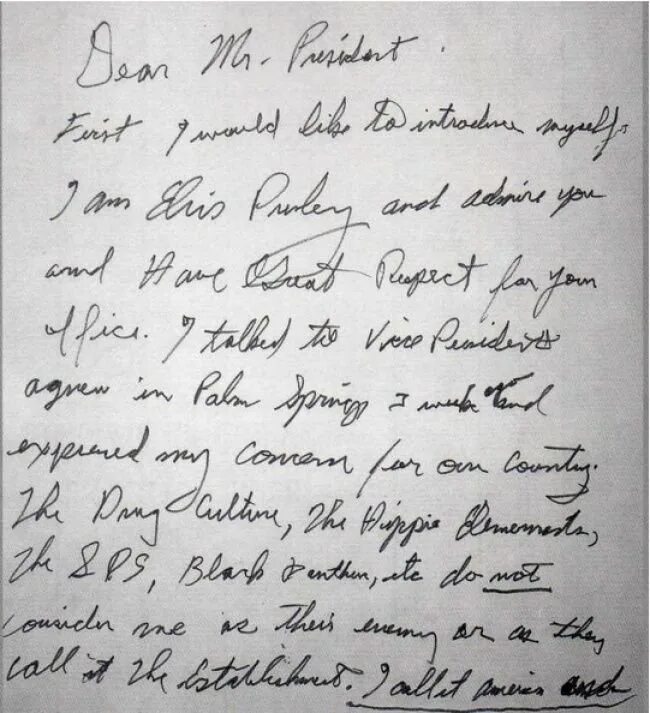 Dear Mr. President.
First I would like to introduce myself.
I am Elvis Presley and admire you
and Have Great Respect for your
office. I talked to Vice President
agnew in Palm Springs 3 weeks ago and
expressed my concern for our country.
The Drug Culture, The Hippie Elements,
The SDS, Black Panthers, etc do not
consider me as their enemy or as they
call it The Establishment. I call it america and